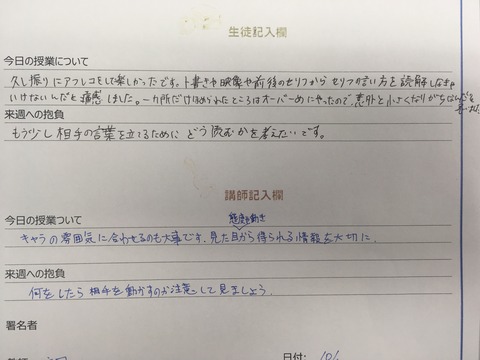 生徒記入欄
今日の授業について
久し振りにアフレコをして楽しかったです。ト書きや映像や前後のセリフからセリフの言い方を読解しなきゃ
いけないんだと痛感しました。一ヵ所だけほめられたところはオーバーめにやったので、意外と小さくなりがちなんだと
来週への抱負
もう少し相手の言葉を立てるためにどう読むかを考えたいです。
講師記入欄
今日の授業ついて
態度や動き
キャラの雰囲気に合わせるのも大事です。見た目から得られる情報を大切に.
来週への抱負
何をしたら相手を動かすのか注意して見ましょう.
署名者
日付: